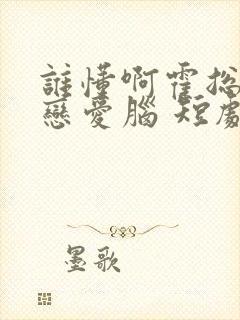 誰懂啊霍总
戀愛腦 短劇
墨歌